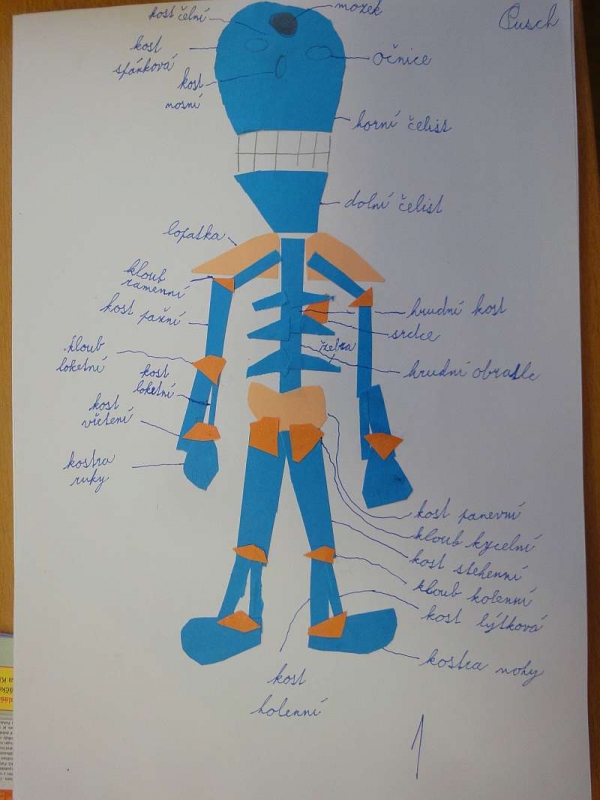 Pusch
kost čelní
mozek
kost
spánková
očnice
kost
nosní
horní čelist
dolní čelist
lopatka
kloub
ramenní
kost pažní
hrudní kost
srdce
žebra
kloub
loketní
kost
loketní
hrudní obratle
kost
vřetení
kostra
ruky
kost panevní
kloub kyčelní
kost stehenní
kloub kolenní
kost lýtková
kostra nohy
kost
holenní
1